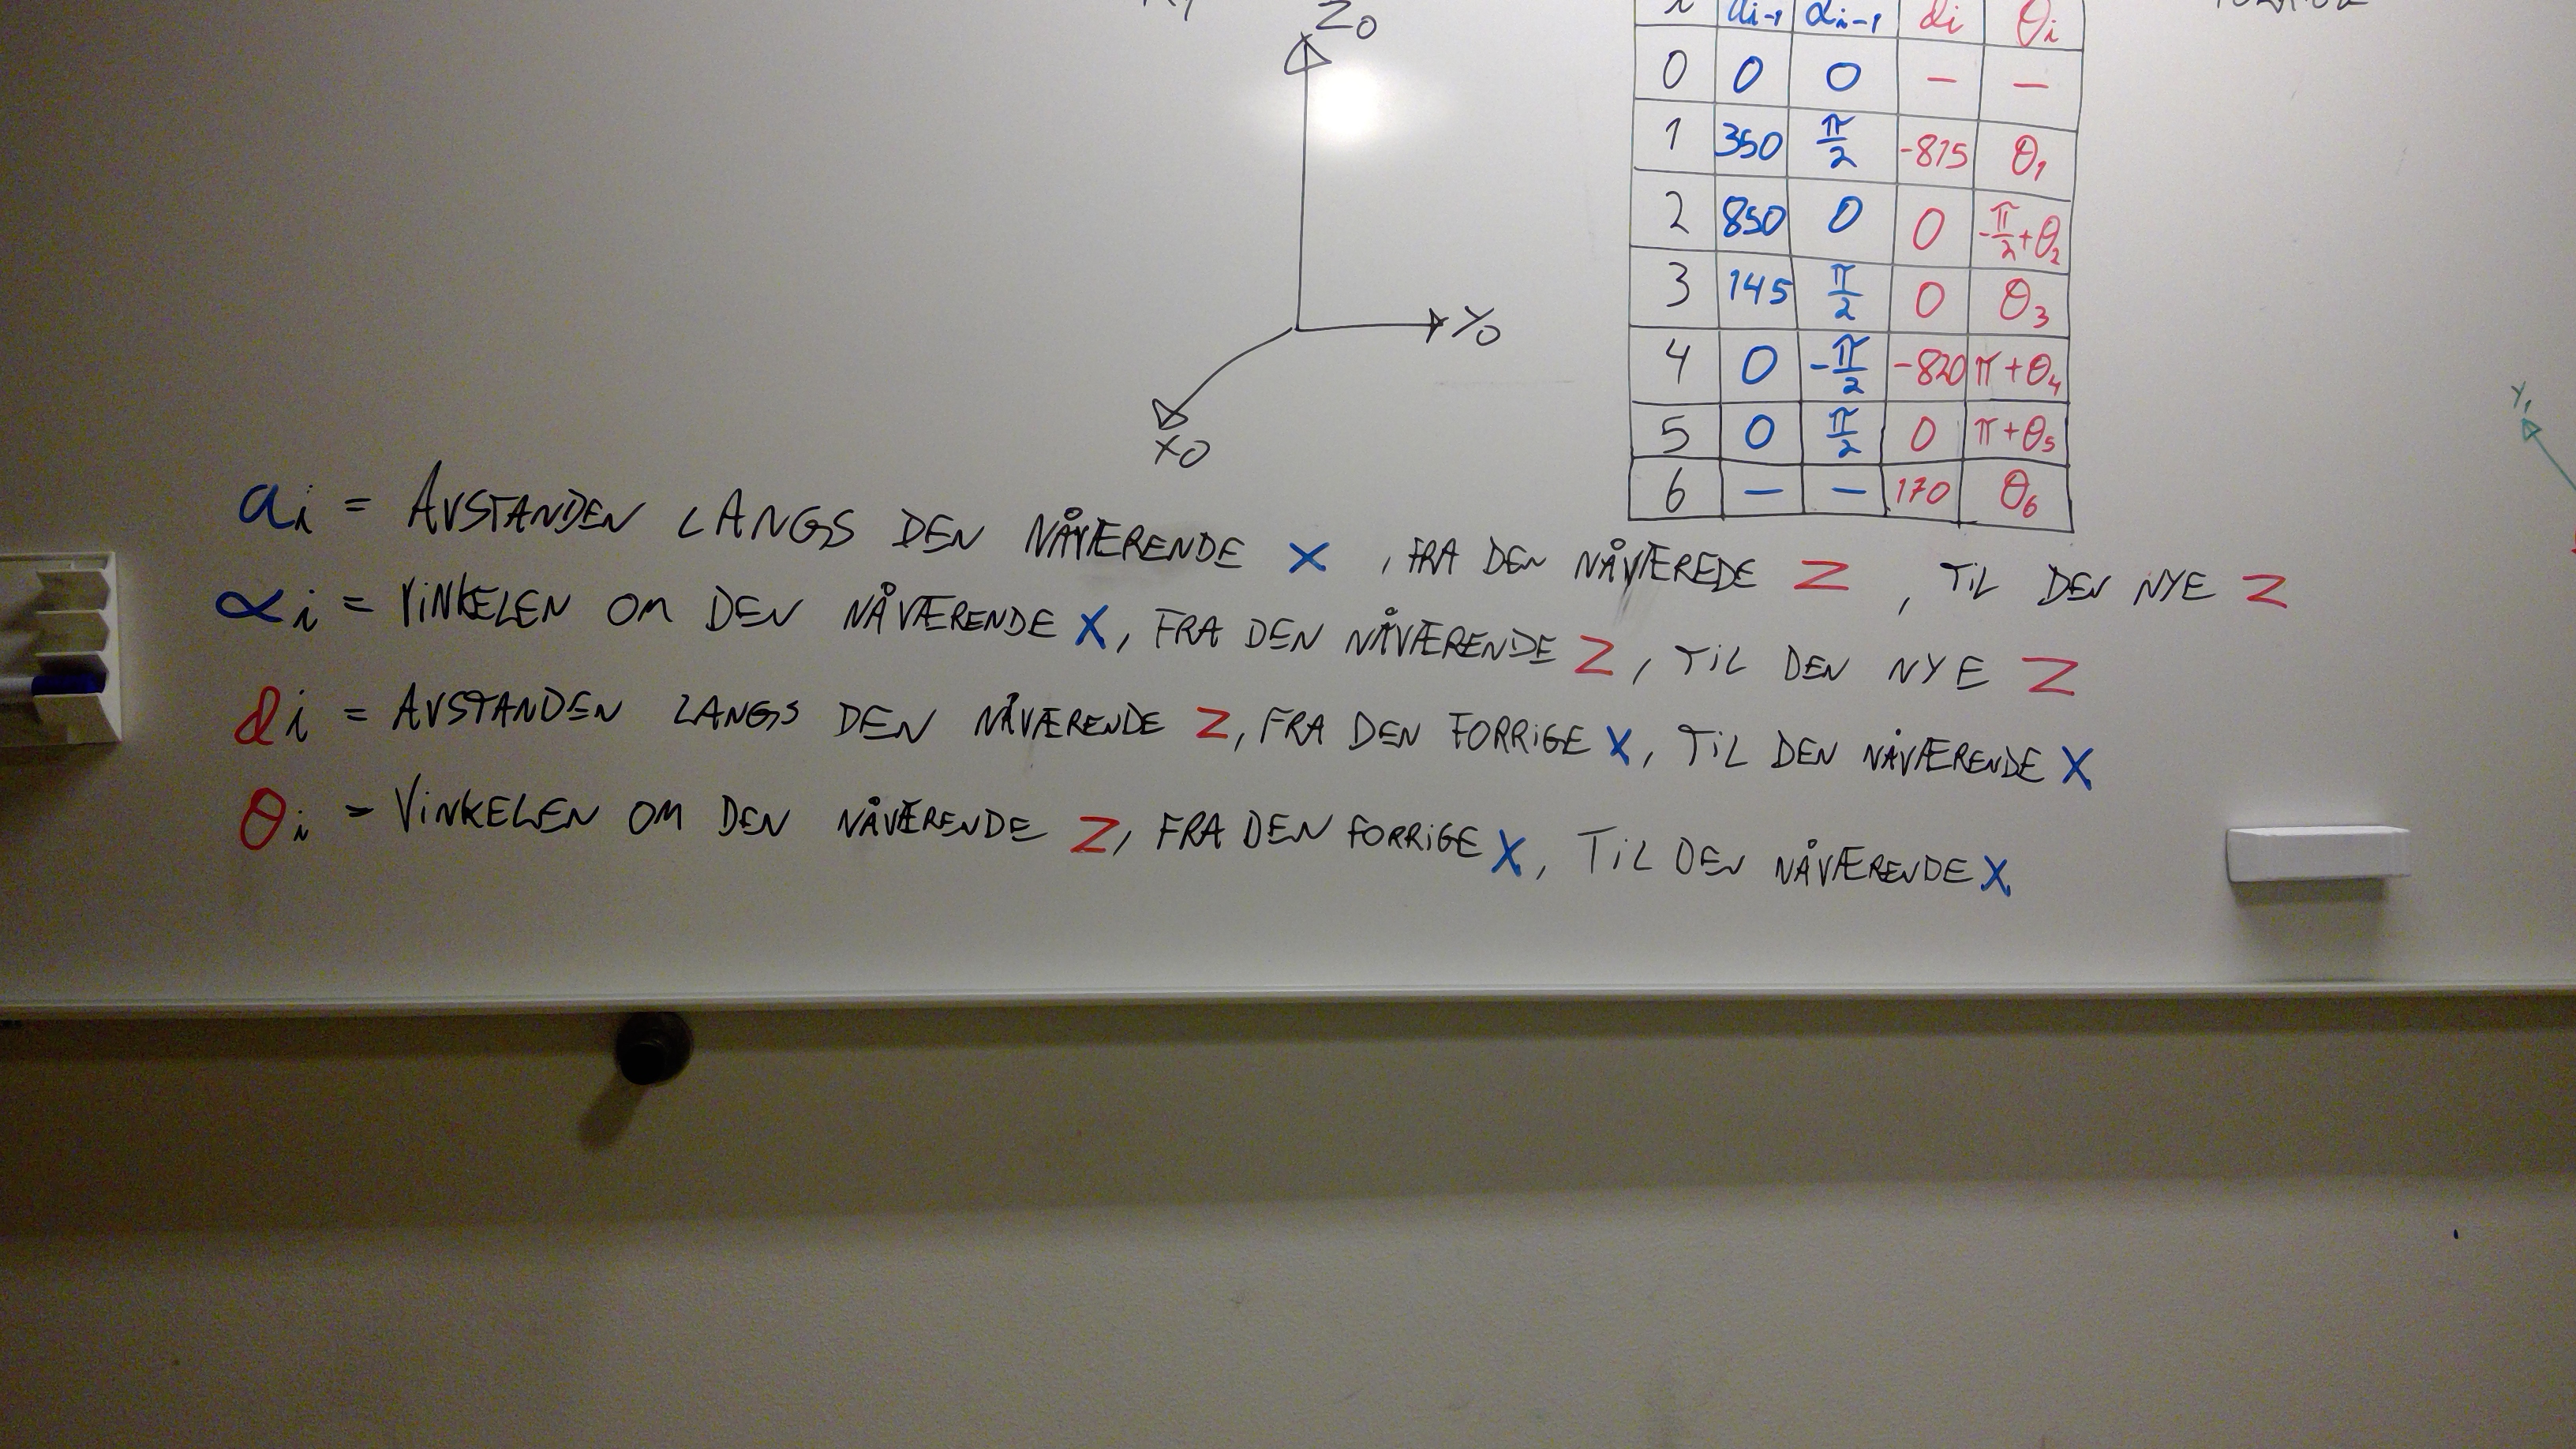 Z0
Y0
X0
i ai-1 αi-1 di θi
0 0 0 — —
1 350 π/2 -815 θ1
2 850 0 0 -π/2+θ2
3 145 π/2 0 θ3
4 0 -π/2 -820 π+θ4
5 0 π/2 0 π+θ5
6 — — 170 θ6
Y1
ai = AVSTANDEN LANGS DEN NÅVÆRENDE X , FRA DEN NÅVÆREDE Z , TIL DEN NYE Z
αi = VINKELEN OM DEN NÅVÆRENDE X, FRA DEN NÅVÆRENDE Z, TIL DEN NYE Z
di = AVSTANDEN LANGS DEN NÅVÆRENDE Z, FRA DEN FORRIGE X, TIL DEN NÅVÆRENDE X
θi = VINKELEN OM DEN NÅVÆRENDE Z, FRA DEN FORRIGE X, TIL DEN NÅVÆRENDE X